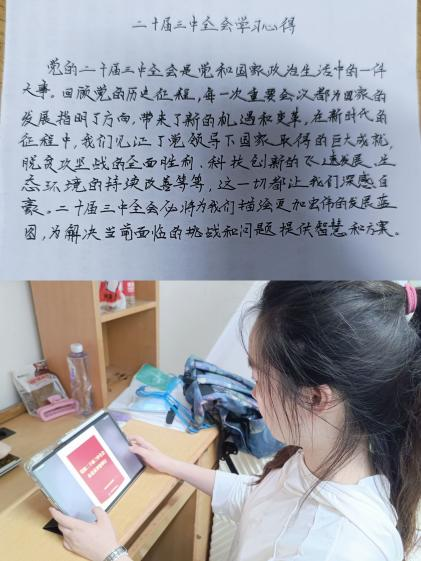 二十届三中全会学习心得
党的二十届三中全会是党和国家政治生活中的一件
大事。回顾党的历史征程，每一次重要会议都为国家的
发展指明了方向，带来了新的机遇和变革。在新时代的
征程中，我们见证了党领导下国家取得的巨大成就，
脱贫攻坚战的全面胜利、科技创新的飞速发展、生
态环境的持续改善等等，这一切都让我们深感自
豪。二十届三中全会必将为我们描绘更加宏伟的发展蓝
图，为解决当前面临的挑战和问题提供智慧和方案。